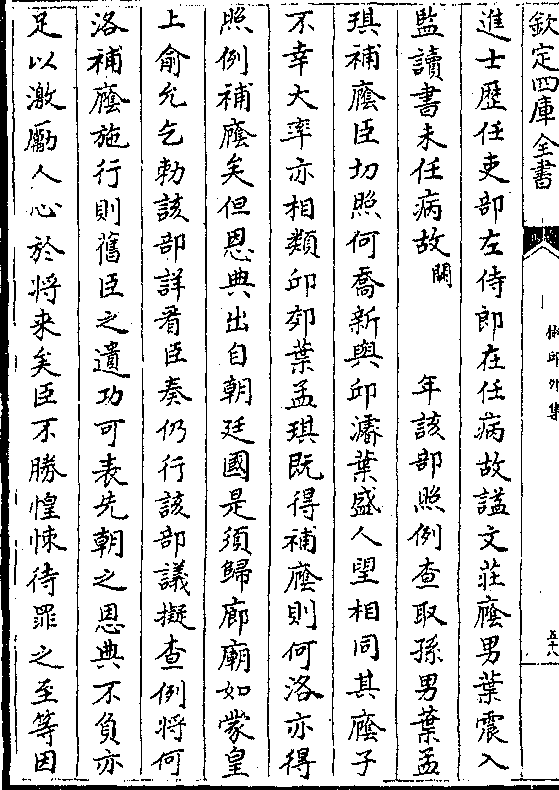 欽定四庫全書
進士歷任吏部左侍郎在任病故諡文莊廕男葉震入
監讀書未任病故闕　年該部照例查取孫男葉孟
琪補廕臣切照何喬新與邱濬葉盛人望相同其廕子
不幸大率亦相類邱郊葉孟琪既得補廕則何洛亦得
照例補廕矣但恩典出自朝廷國是須歸廊廟如蒙皇
上俞允乞勅該部詳看臣奏仍行該部議擬查例將何
洛補廕施行則舊臣之遺功可表先朝之恩典不負亦
足以激勵人心於將來矣臣不勝惶悚待罪之至等因
外集
五十八